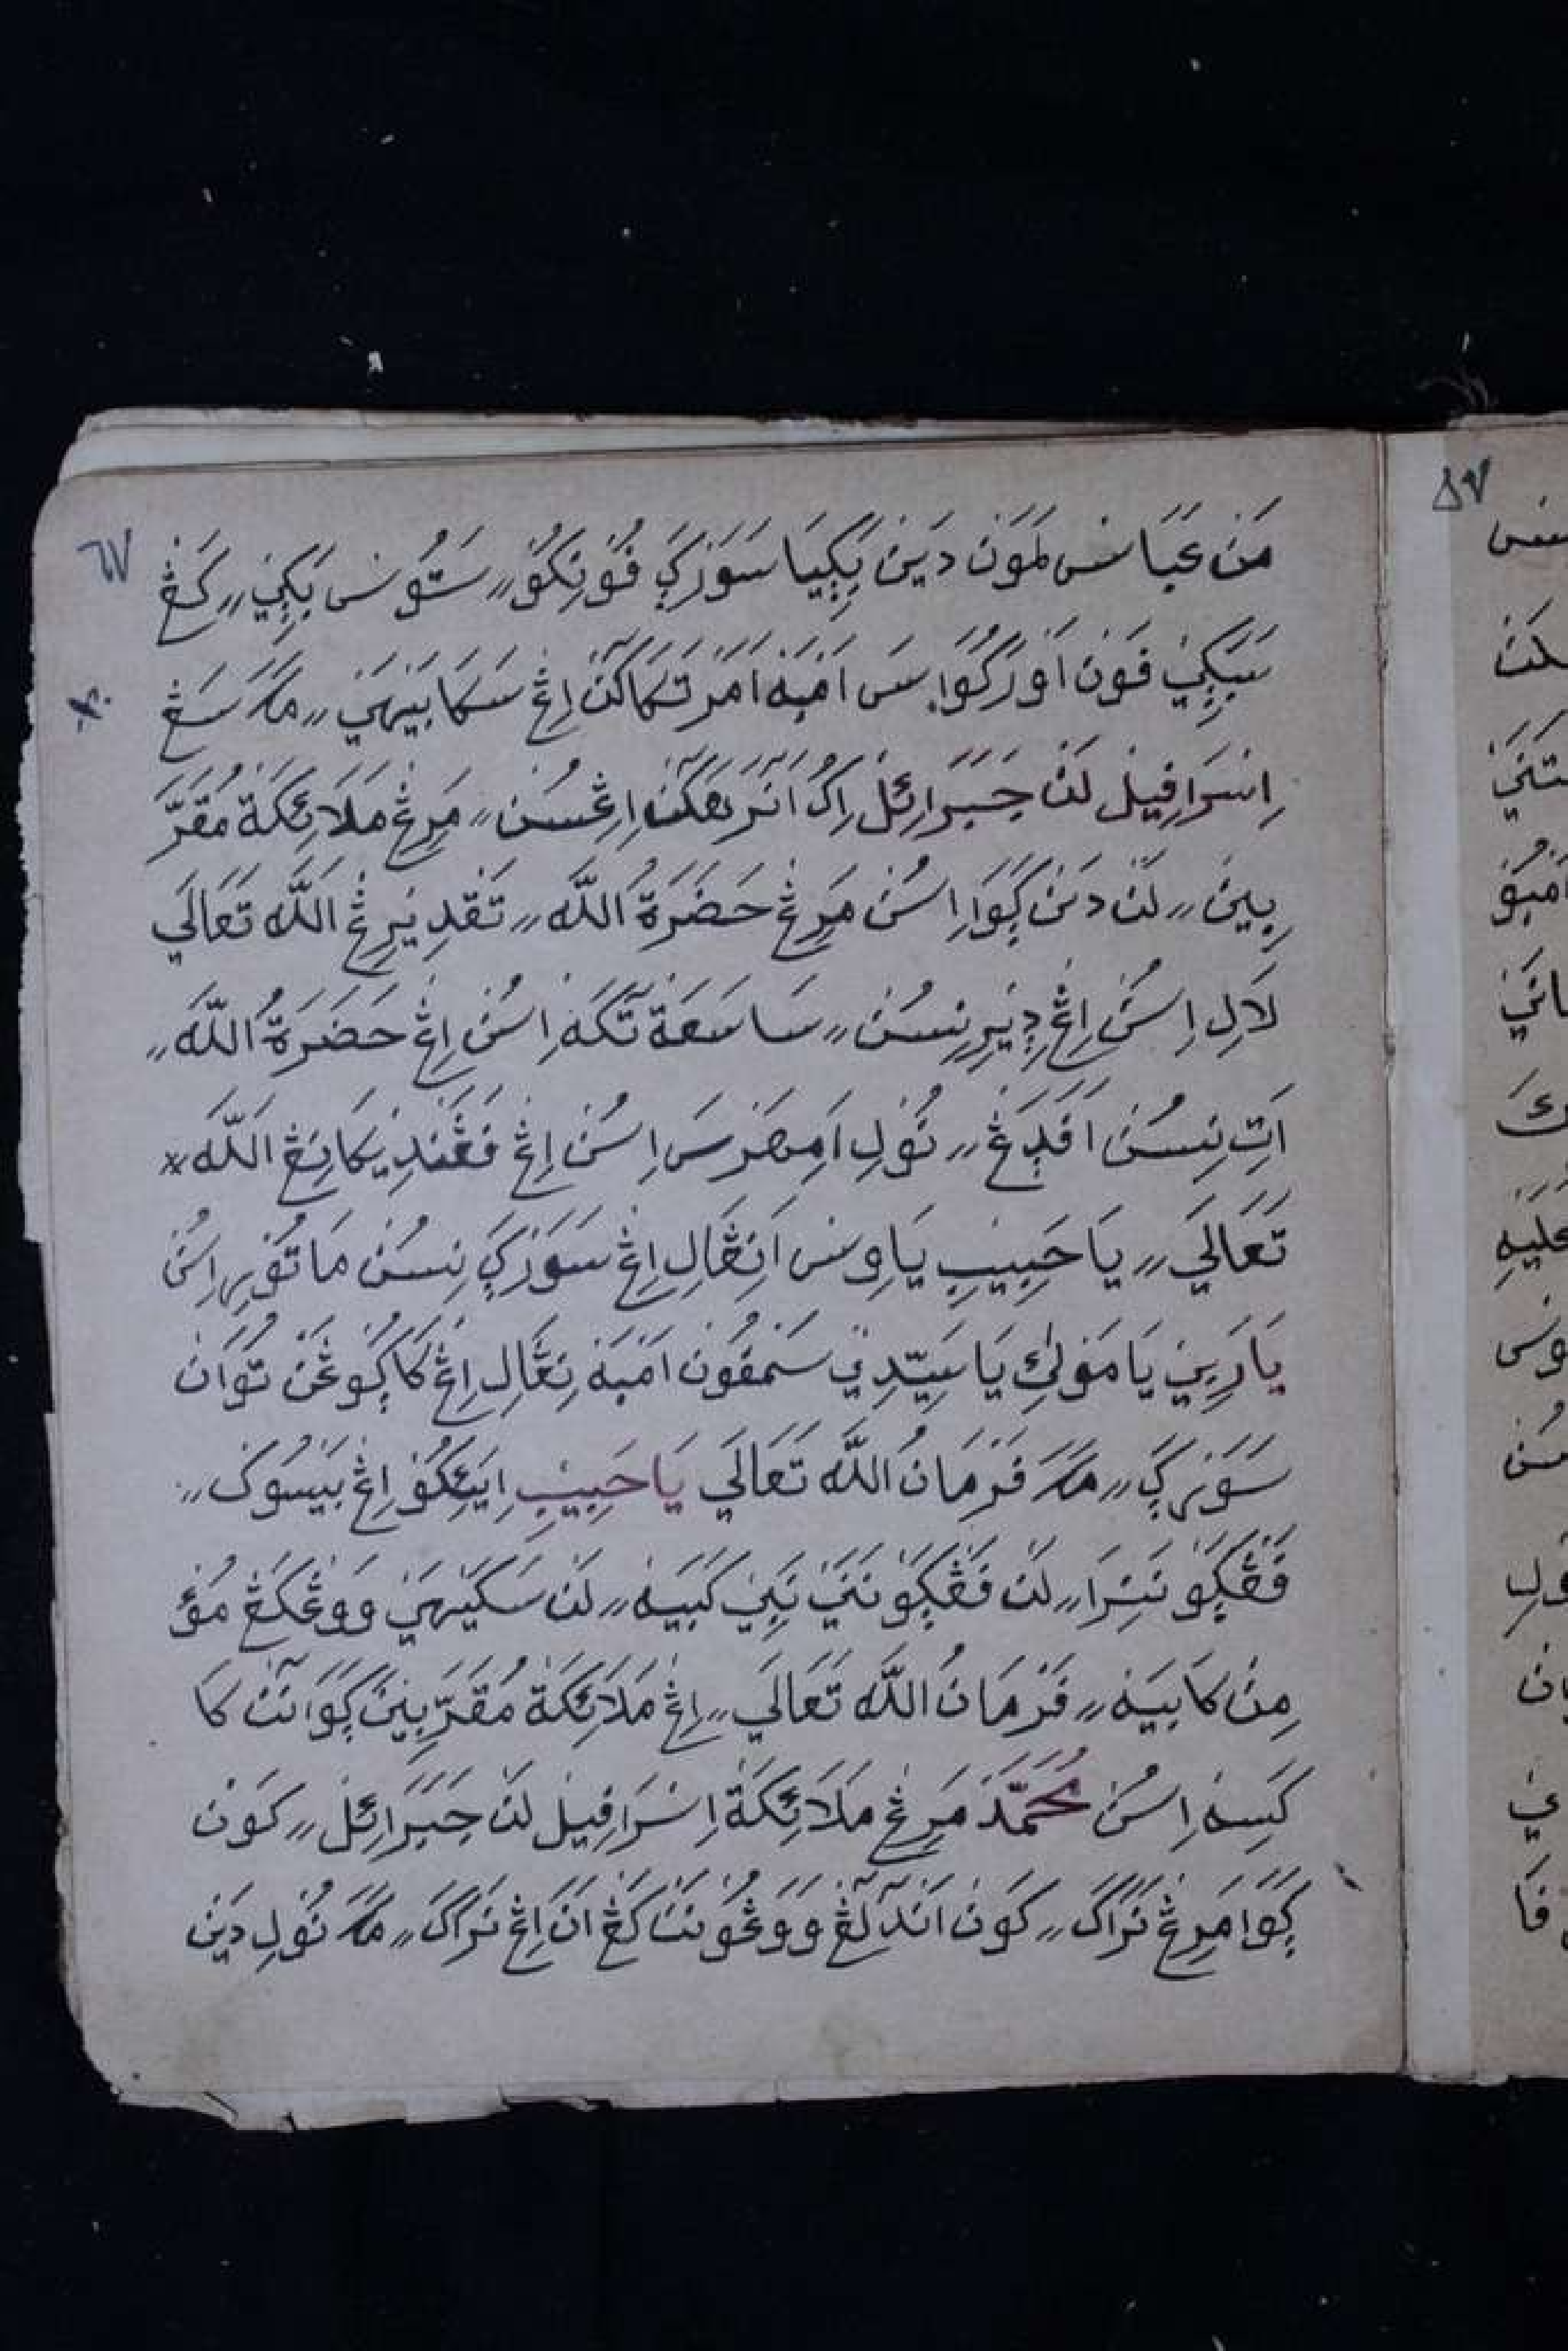 ٦٧
مَنْ عَبَاسْ لَمَوْنْ دَيْنْ بَكِيْيَا سَوَرْكَ فُوْنِكُوْ ،، سَتُوْسْ بَكِيْنْ ،، كَڠْ
سَبَكِيْنْ فَوْنْ اَوْرَ كُوَا سَ اَمْبَهْ اَمَرْتَكَاكَنْ اِڠْ سَكَابَيْهَيْ ،، مَكَ سَڠْ
اِسْرَافِيْلْ لَنْ جَبَرَائِلْ اِكُ اَنَرَهَكَنْ اِڠْسُنْ ،، مَرِڠْ مَلَائِكَةْ مُقَرَّ
بِيْنَ ،، لَنْ دَيْنْ ڮَوَا اِسُنْ مَرِڠْ حَضْرَةُ اللّٰه ،، تَقْدِيْرِڠْ اللّٰه تَعَالَي
لَالِ اِسُنْ اِڠْ دِيْرِنِسُنْ ،، سَاسَعَةْ تَكَهْ اِسُنْ اِڠْ حَضَرَةُ اللّٰه ،،
اَتِنِسُنْ اَفَدَڠْ ،، نُوْلِ اَمِهَرْسَ اِسُنْ اِڠْ فَڠَنْدِيْكَانِڠْ اللّٰه
تَعَالَي ،، يَا حَبِيْبِ يَاوِسْ اَنِڠَالِ اِڠْ سَوَرْكَ نِسُنْ مَاتُوْرِ اِسُنْ
يَارَبِيْ يَامَوْلَيْ يَا سَيِّدِيْ سَمْفُوْنْ اَمْبَهْ نِڠَالِ اِڠْ كَاڮُوْڠَنْ تُوَانْ
سَوَرْكَ ،، مَكَ فَرْمَانُ اللّٰه تَعَالَي يَا حَبِيْبِ اِيَئِكُوْ اِڠْ بَيْسُوْكْ ،،
فَڠْڮَوْ نَنِرَا ،، لَنْ فَڠْڮَوْنَنَيْ نَبِيْ كَبَيَهْ ،، لَنْ سَكَيْهَيْ وَوْڠْكَڠْ مُؤْ
مِنْ كَابَيَهْ ،، فَرْمَانُ اللّٰه تَعَالَي ،، اِڠْ مَلَائِكَةْ مُقَرَّبِيْنَ ڮَوَانَنْ كَا
كَسِهْ اِسُنْ مُحَمَّدْ مَرِڠْ مَلَائِكَةْ اِسْرَافِيْلْ لَنْ جَبَرَائِلْ ،، كَوْنْ
ڮَوَا مَرِڠْ نَرَاكَ ،، كَوْنْ اَنْدَلَڠْ وَوَڠُوْنَنْ كَڠْ اَنْ اِڠْ نَرَاكَ ،، مَكَ نُوْلِ دَيْنْ